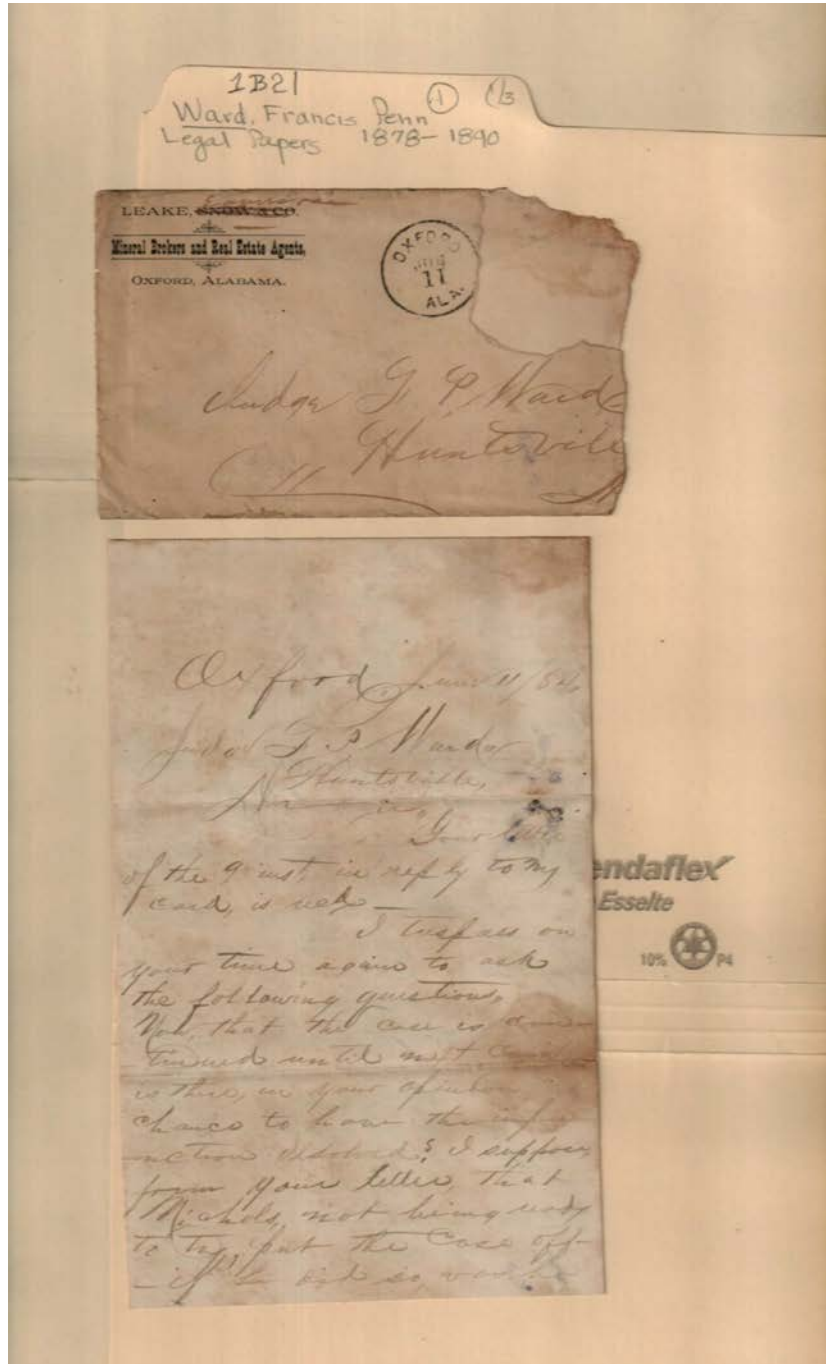 1B21
Ward, Francis Penn
Legal Papers 1878-1890
LEAKE, SNOW & CO.
Mineral Brokers and Real Estate Agents,
OXFORD, ALABAMA.
OXFORD
11
ALA.
Judge F P. Ward
Huntsville
Oxford, June 11/84
Judge F P Ward
Huntsville,
Your
of the 9 inst, in reply to my
card, is recd
I trespass on
your time again to ask
the following questions,
Now, that the case is
until next
is there, in your opinion,
chance to have the
I suppose
from your letter, that
Nichols, not being ready
to try, put the case off
did so, was he
endaflex
Esselte
10% P4